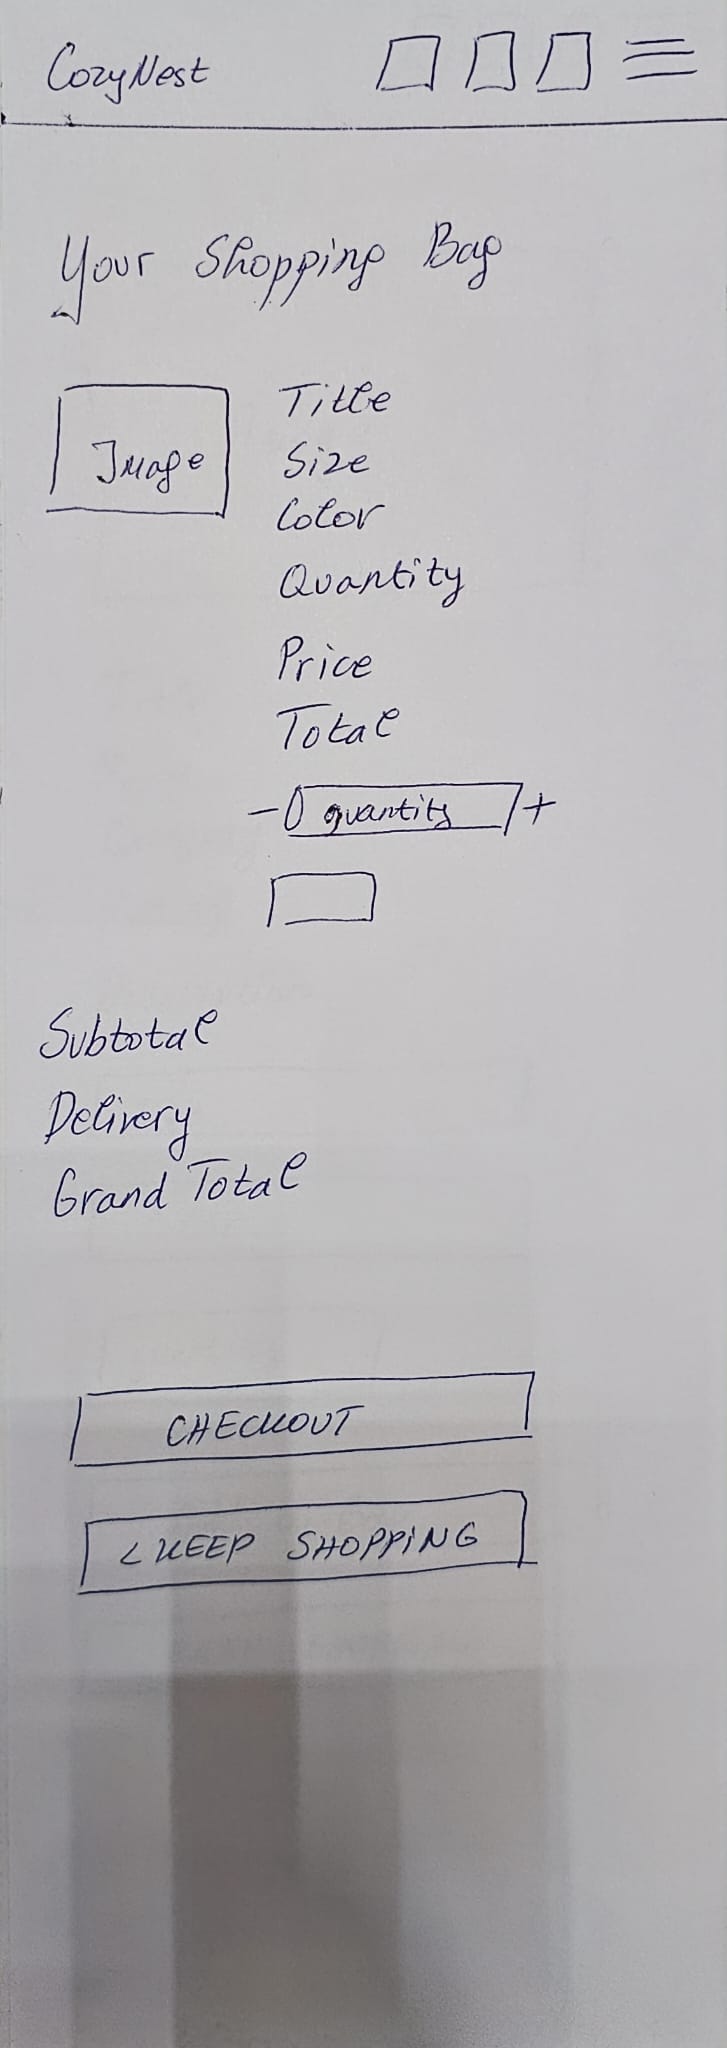 CozyNest
Your Shopping Bag
Image
Title
Size
Color
Quantity
Price
Total
- quantity +
Subtotal
Delivery
Grand Total
CHECKOUT
< KEEP SHOPPING